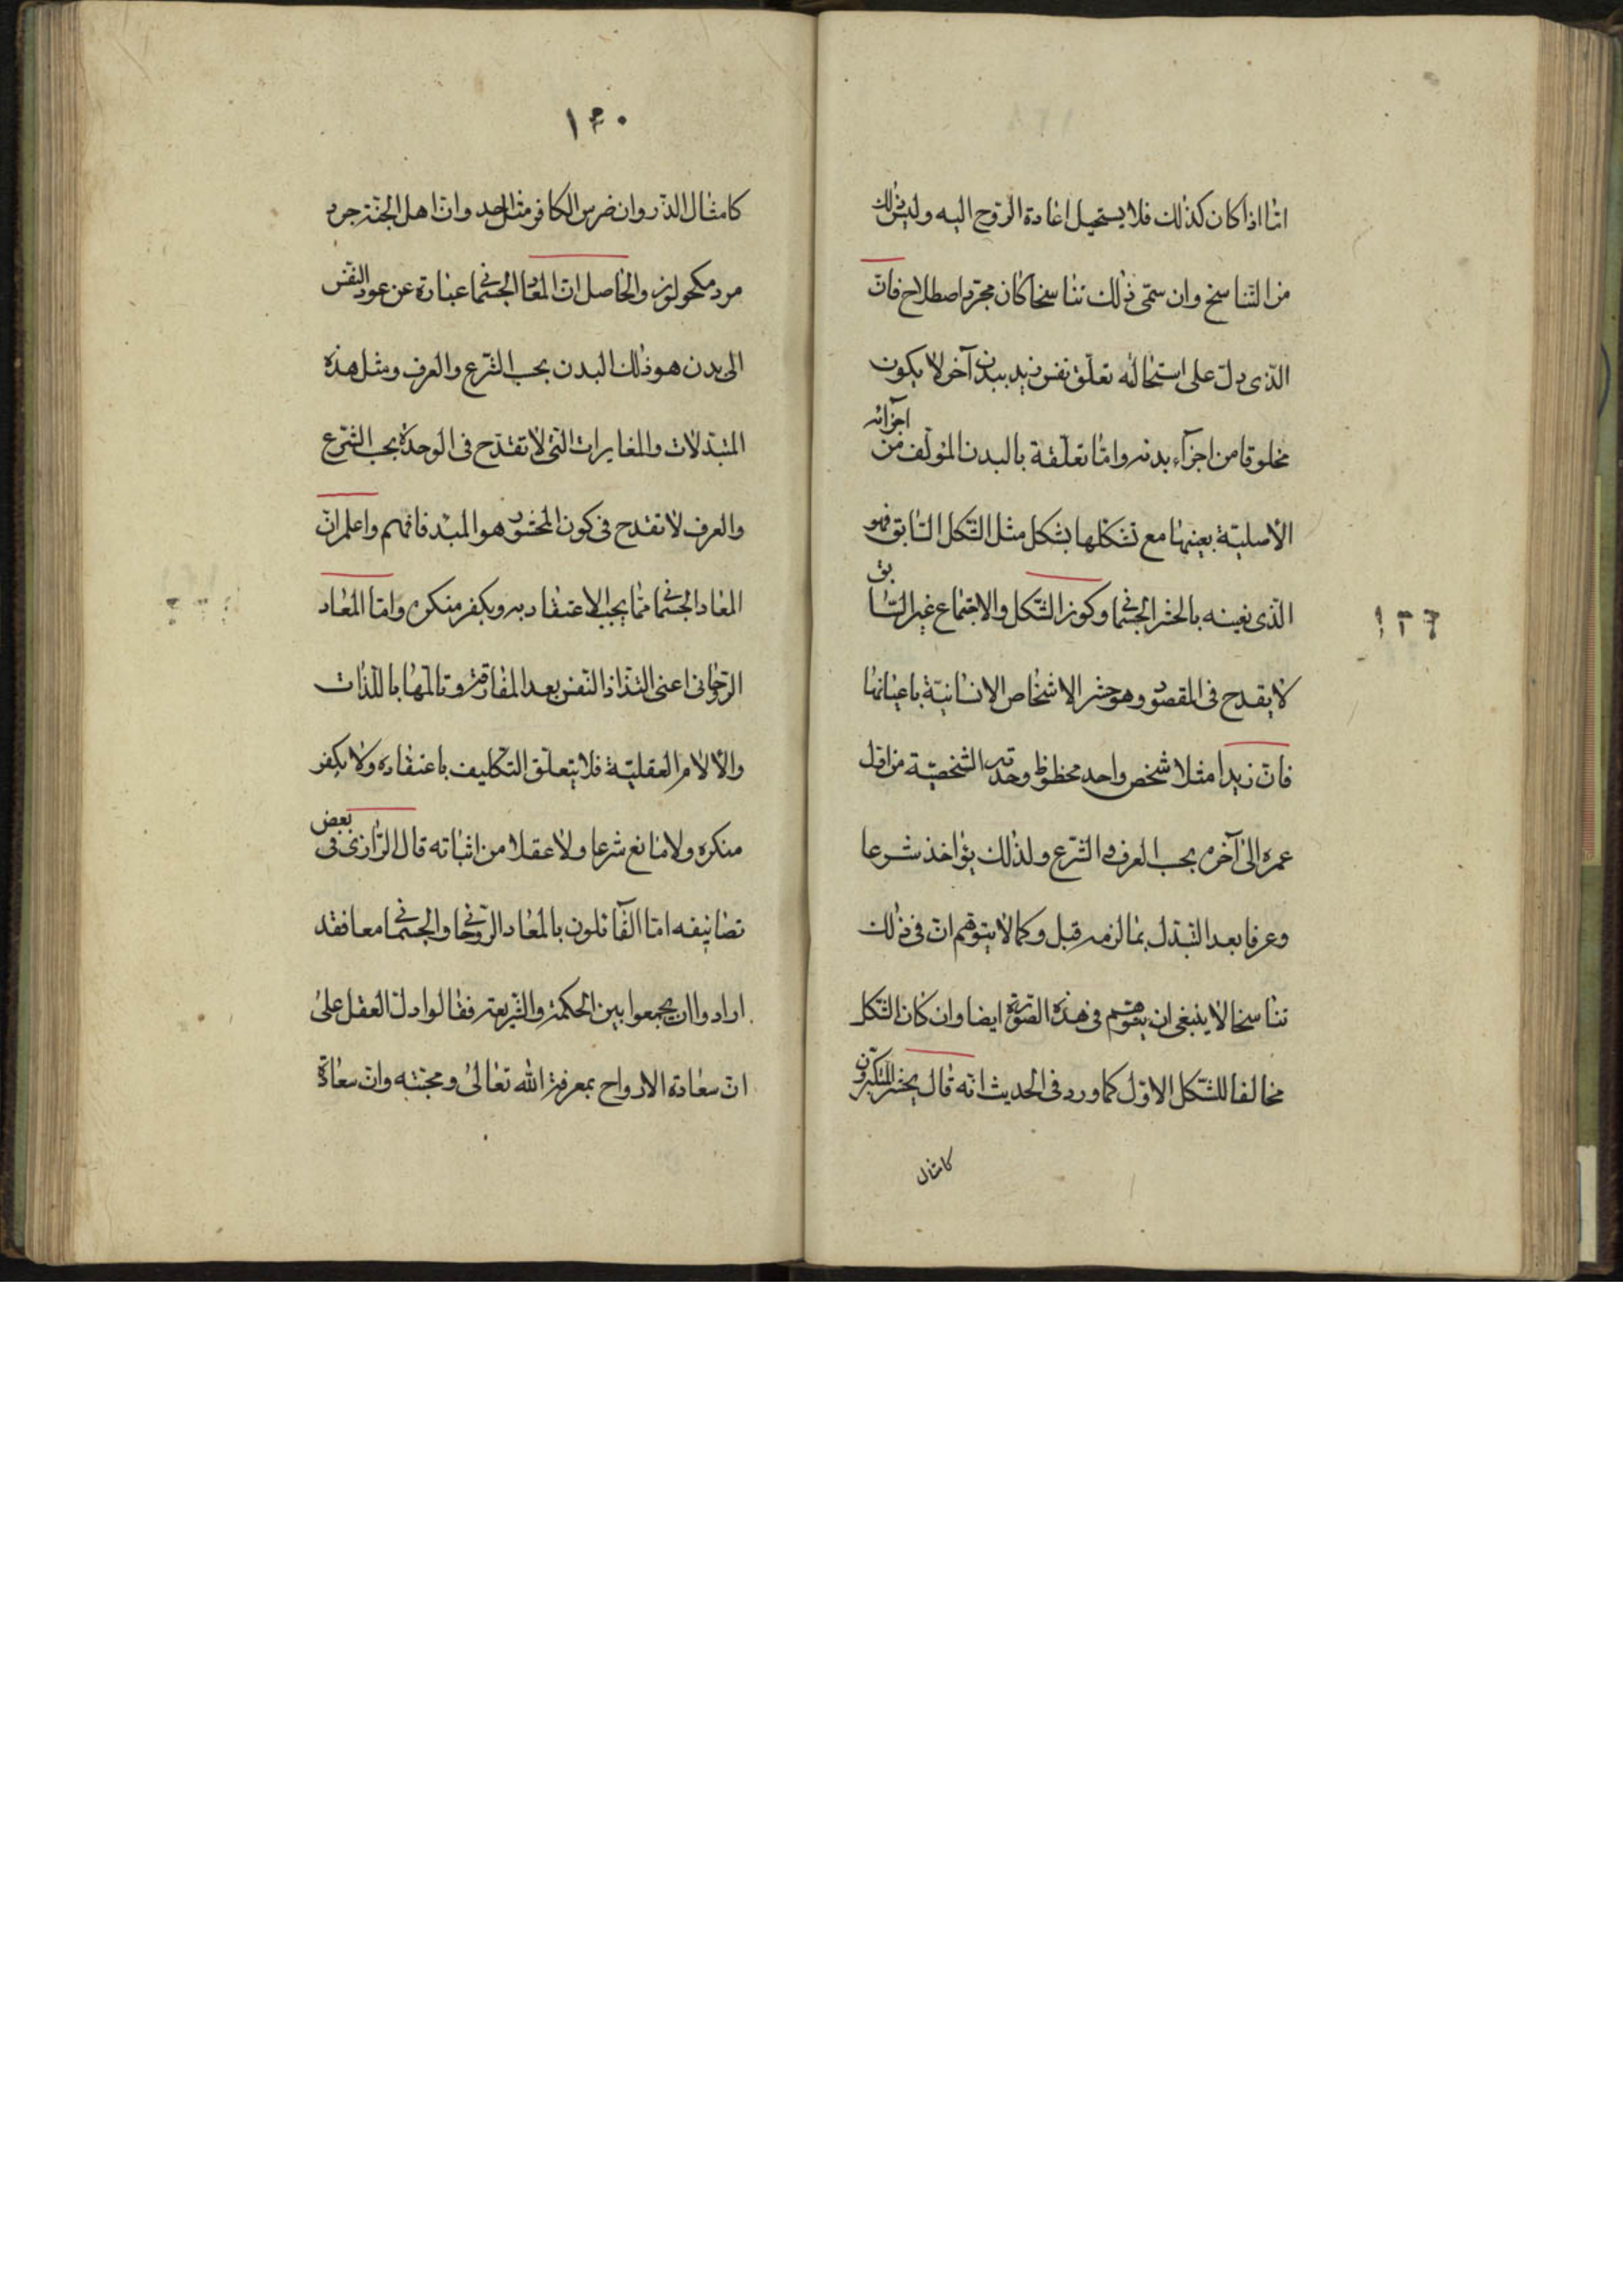 انا اذا كان كذلك فلا يستحيل اعادة الروح اليه وليس ذلك
من التناسخ وان سمّى ذلك تناسخا كان مجرّد اصطلاح فانّ
الّذى دلّ على استحالته تعلّق نفس زيد ببدن آخر لا يكون
مخلوقا من اجزآء بدنه وامّا تعلّقه بالبدن المؤلّف من اجزائه
الأصليّة بعينها مع تشكّلها بشكل مثل الشّكل السّابق فهو
الّذى نعينه بالحشر الجسمانى وكون الشّكل والاجتماع غير السّابق
١٣٦
لا يقدح فى المقصود وهو حشر الاشخاص الانسانيّة باعيانها
فانّ زيدا مثلا شخص واحد محفوظ وحدته الشخصيّة من اوّل
عمره الى آخره بحسب العرف والشّرع ولذلك يؤاخذ شرعا
وعرفا بعد التّبدّل بما لزمه قبل وكما لا يتوهّم انّ فى ذلك
تناسخا لا ينبغى ان يتوهّم فى هذه الصّورة ايضا وان كان الشّكل
مخالفا للشّكل الاوّل كما ورد فى الحديث انّه قال يحشر المتكبّرون
كامثال
١٤٠
كامثال الذّر وان ضرس الكافر مثل احد وانّ اهل الجنّة جرد
مرد مكحولون والحاصل انّ المعاد الجسمانى عبارة عن عود النّفس
الى بدن هو ذلك البدن بحسب الشّرع والعرف ومثل هذه
المتبدّلات والمغايرات الّتى لا تقدّح فى الوحدة بحسب الشّرع
والعرف لا تقدح فى كون المحشور هو المبدء فافهم واعلم انّ
المعاد الجسمانى ممّا يجب الاعتقاد به ويكفر منكره وامّا المعاد
الرّوحانى اعنى التذاذ النّفس بعد المفارقة وتالّمها باللّذات
والألام العقليّة فلا يتعلّق التّكليف باعتقاده ولا يكفر
منكره ولا مانع شرعا ولا عقلا من اثباته قال الرّازى فى بعض
تصانيفه امّا القآئلون بالمعاد الرّوحانى والجسمانى معا فقد
ارادوا ان يجمعوا بين الحكمة والشّريعة فقالوا دلّ العقل على
انّ سعادة الارواح بمعرفة الله تعالى ومحبّته وانّ سعادة